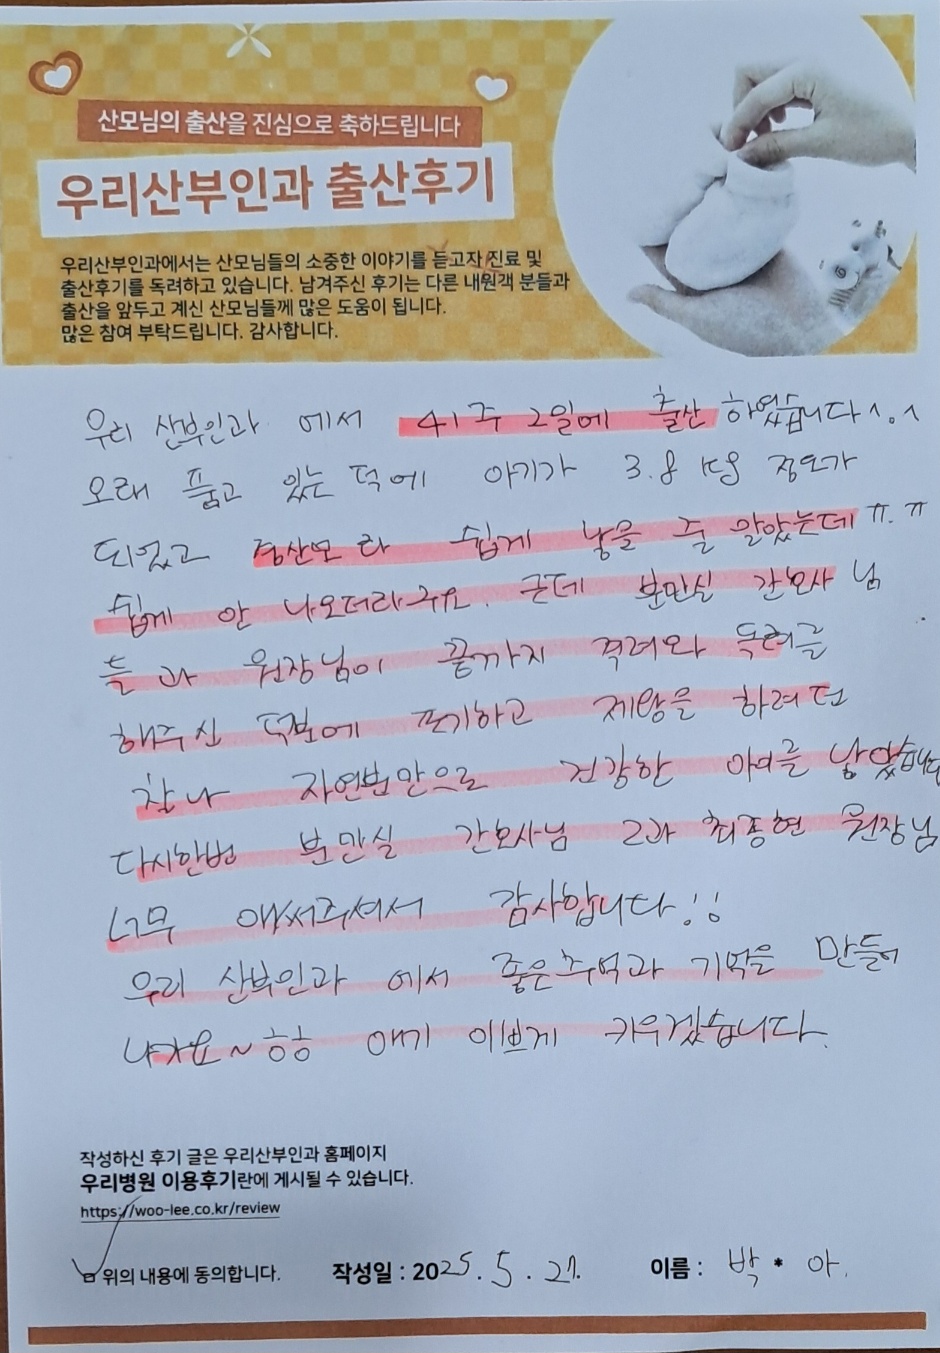 산모님의 출산을 진심으로 축하드립니다
우리산부인과 출산후기
우리산부인과에서는 산모님들의 소중한 이야기를 듣고자 진료 및
출산후기를 독려하고 있습니다. 남겨주신 후기는 다른 내원객 분들과
출산을 앞두고 계신 산모님들께 많은 도움이 됩니다.
많은 참여 부탁드립니다. 감사합니다.
우리 산부인과 에서 41주 2일에 출산 하였습니다^.^
오래 품고 있는 덕에 아기가 3.8 kg 정도가
되었고 경산모라 쉽게 낳을 줄 알았는데 ㅠ.ㅠ
쉽게 안 나오더라구요. 근데 분만실 간호사 님
들 과 원장님이 끝까지 격려와 독려를
해주신 덕분에 포기하고 제왕을 하려던
찰나 자연분만으로 건강한 아이를 낳았습니다
다시한번 분만실 간호사님 그과 최종현 원장님
너무 애써주셔서 감사합니다!!
우리 산부인과 에서 좋은추억과 기억을 만들어
나가요~ㅎㅎ 애기 이쁘게 키우겠습니다.
작성하신 후기 글은 우리산부인과 홈페이지
우리병원 이용후기란에 게시될 수 있습니다.
https://woo-lee.co.kr/review
위의 내용에 동의합니다. 작성일 : 2025. 5. 27. 이름 : 박 * 아.